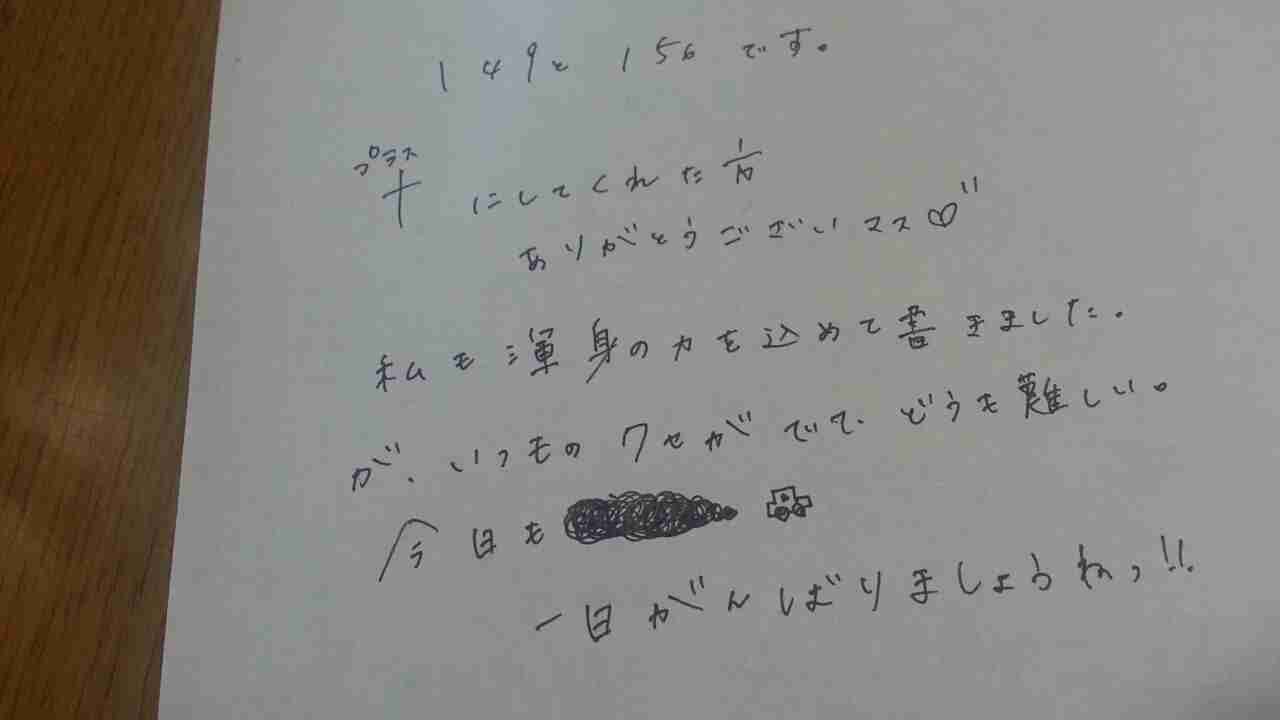 149と156です。
プラス
十にしてくれた方
ありがとうございマス♡〃
私も渾身の力を込めて書きました.
が、いつものクセがでて、どうも難しい。
今日も
一日がんばりましょうねっ!!